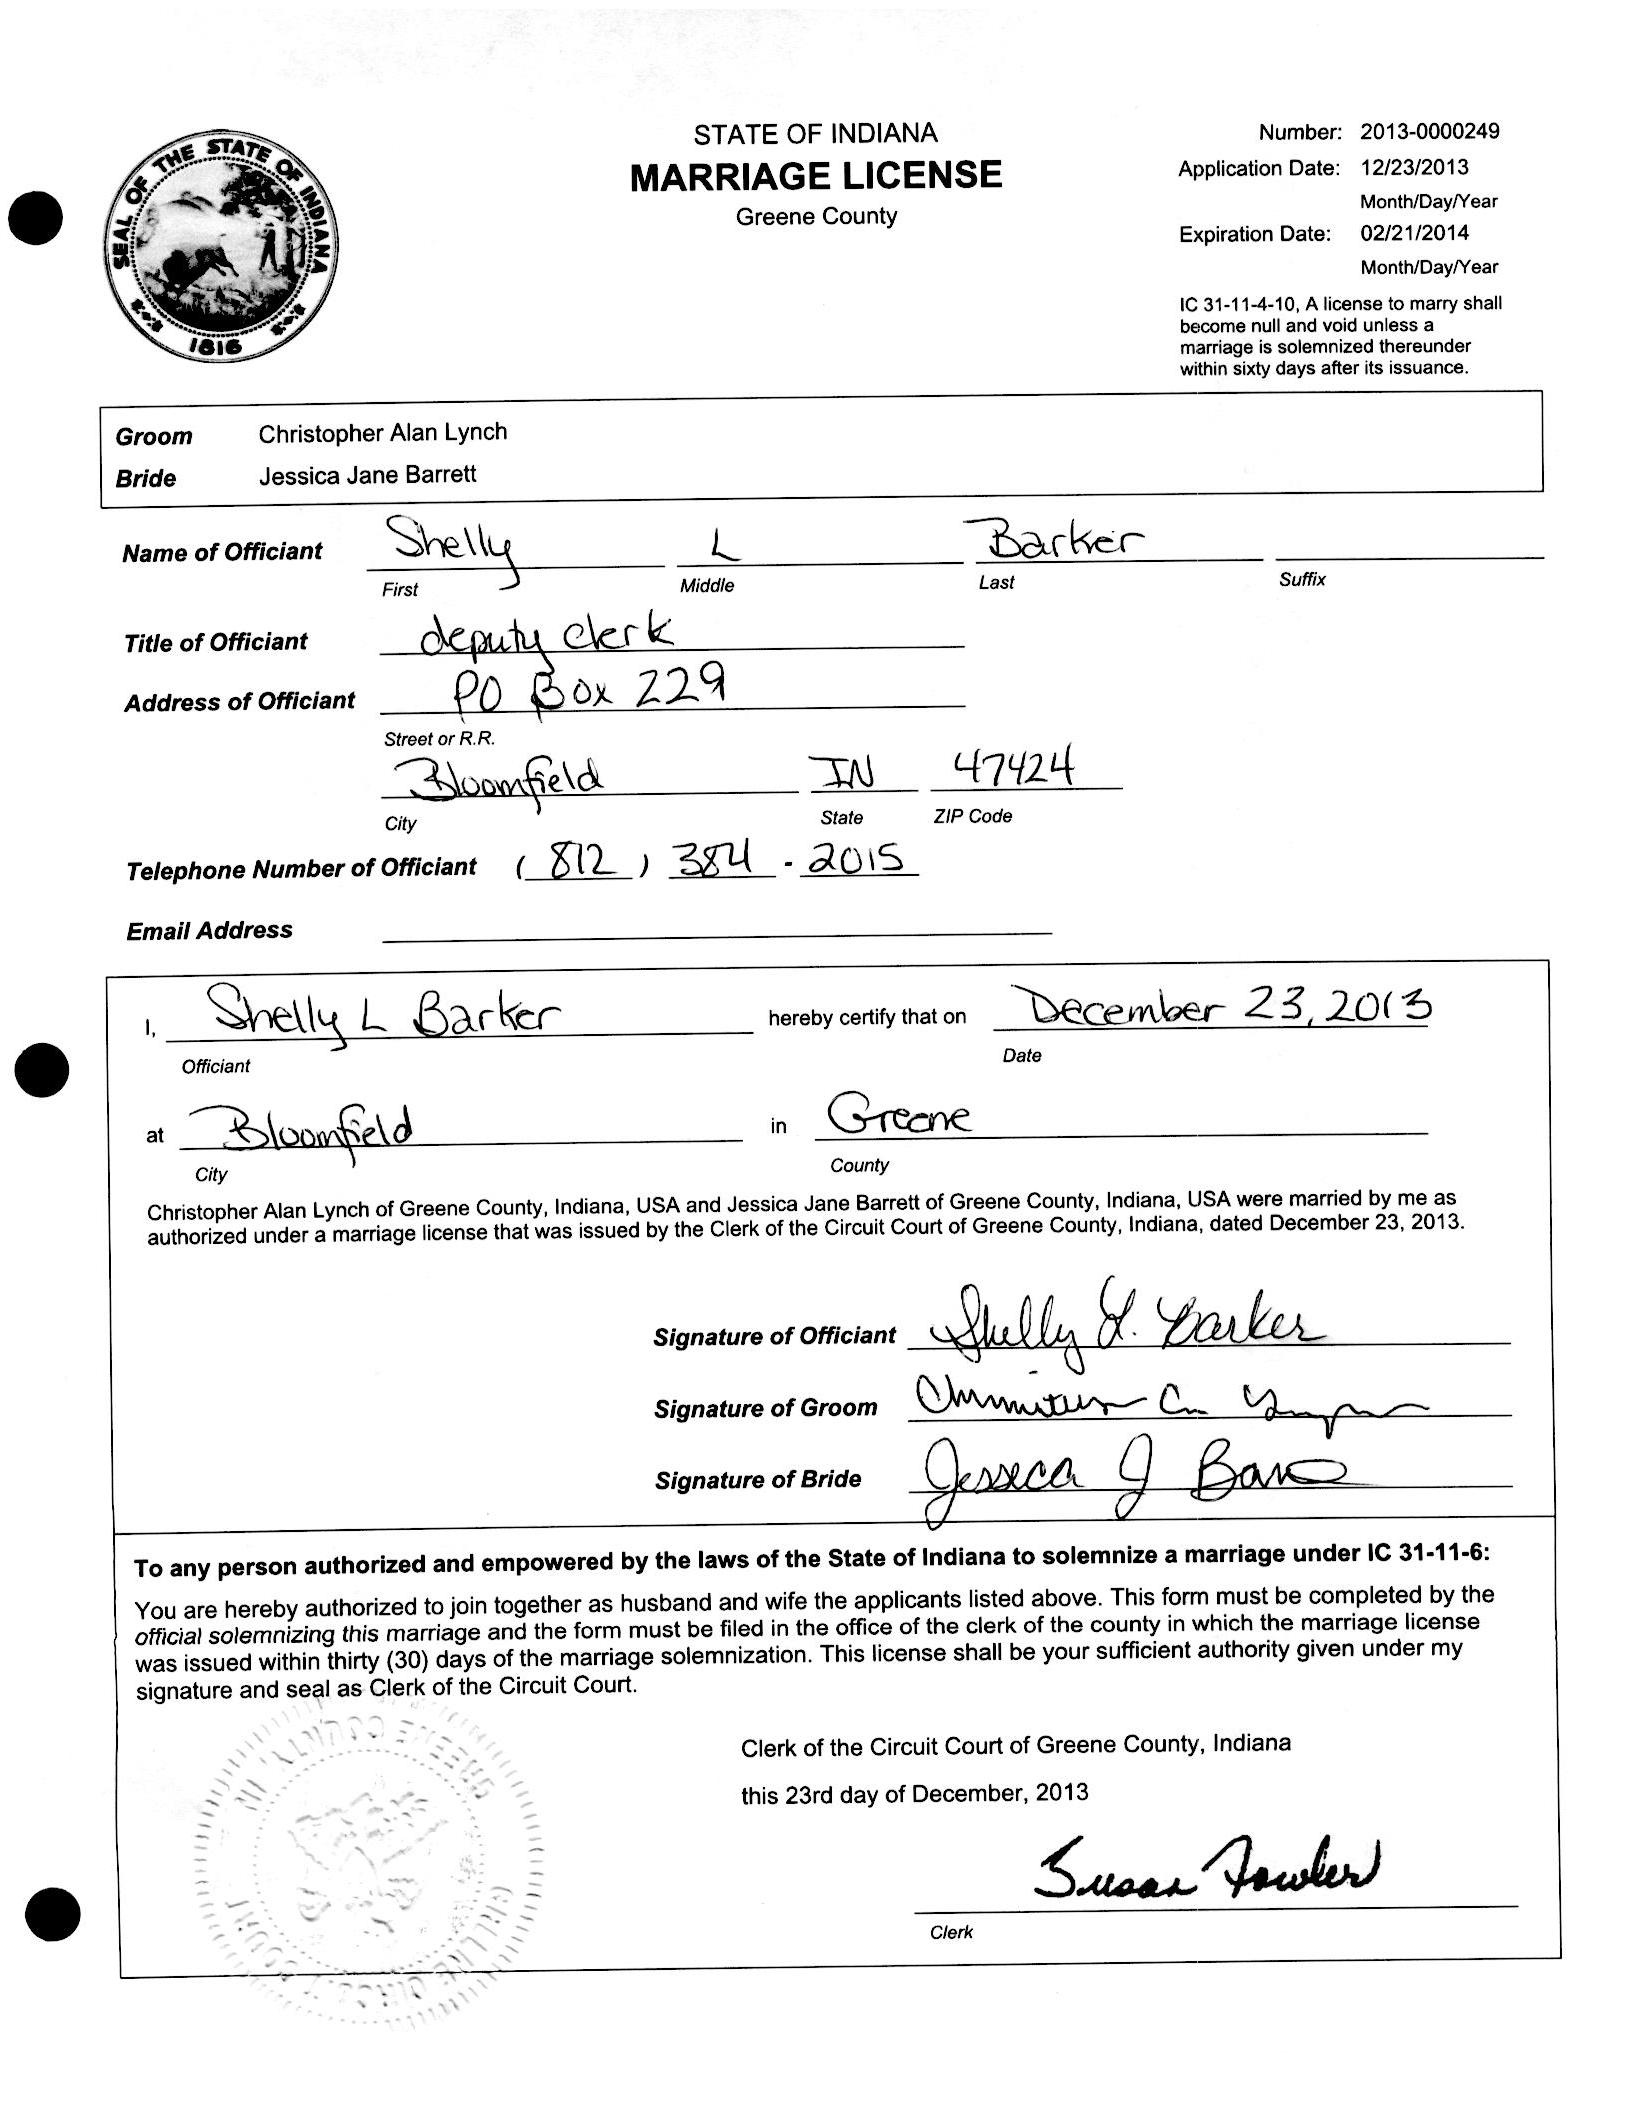 SEAL OF THE STATE OF INDIANA
1816
STATE OF INDIANA
MARRIAGE LICENSE
Greene County
Number: 2013-0000249
Application Date: 12/23/2013
Month/Day/Year
Expiration Date: 02/21/2014
Month/Day/Year
IC 31-11-4-10, A license to marry shall
become null and void unless a
marriage is solemnized thereunder
within sixty days after its issuance.
Groom Christopher Alan Lynch
Bride Jessica Jane Barrett
Name of Officiant Shelly L Barker
First Middle Last Suffix
Title of Officiant deputy clerk
Address of Officiant PO Box 229
Street or R.R.
Bloomfield IN 47424
City State ZIP Code
Telephone Number of Officiant (812) 384-2015
Email Address
I, Shelly L Barker hereby certify that on December 23, 2013
Officiant Date
at Bloomfield in Greene
City County
Christopher Alan Lynch of Greene County, Indiana, USA and Jessica Jane Barrett of Greene County, Indiana, USA were married by me as
authorized under a marriage license that was issued by the Clerk of the Circuit Court of Greene County, Indiana, dated December 23, 2013.
Signature of Officiant Shelly L. Barker
Signature of Groom
Signature of Bride Jessica J
To any person authorized and empowered by the laws of the State of Indiana to solemnize a marriage under IC 31-11-6:
You are hereby authorized to join together as husband and wife the applicants listed above. This form must be completed by the
official solemnizing this marriage and the form must be filed in the office of the clerk of the county in which the marriage license
was issued within thirty (30) days of the marriage solemnization. This license shall be your sufficient authority given under my
signature and seal as Clerk of the Circuit Court.
Clerk of the Circuit Court of Greene County, Indiana
this 23rd day of December, 2013
Susan Fowler
Clerk